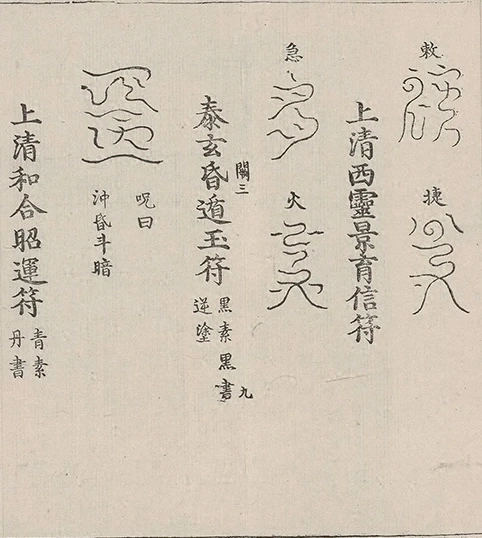 敕
捷
上清西靈景育信符
急
火
闕三
泰玄昏遁玉符
黑素黑書
逆塗
九
呪曰
沖昏斗暗
上清和合昭運符
青素
丹書